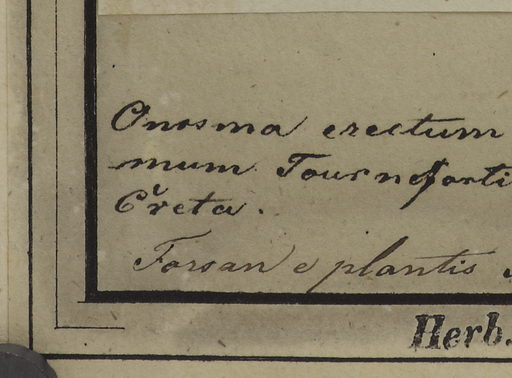 Onosma erectum
mum Tournoforti
Creta.
Forsan e plantis
Herb.